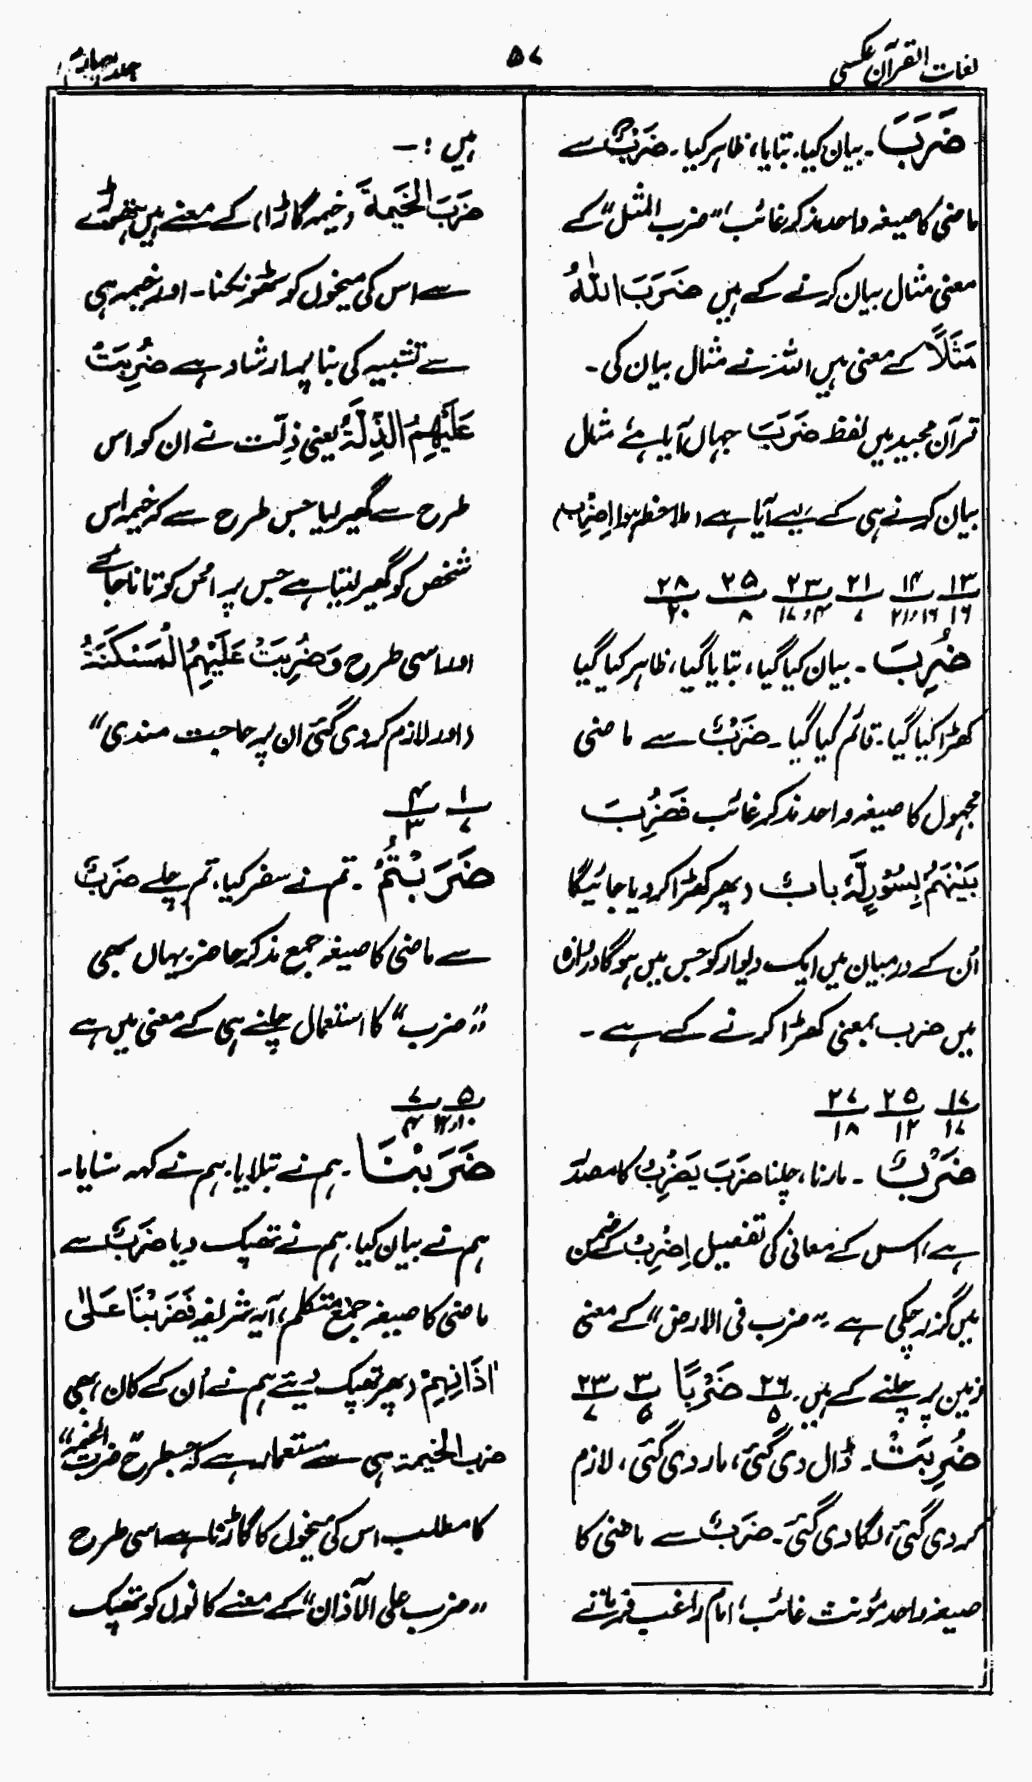 لغات القرآن عکسی
۵۷
جلد چہارم
ضَرَبَ ۔ بیان کیا، بتایا، ظاہر کیا۔ ضَرْبٌ سے
ماضی کا صیغہ واحد مذکر غائب، ”ضرب المثل“ کے
معنی مثال بیان کرنے کے ہیں ضَرَبَ اللّٰہُ
مَثَلًا کے معنی ہیں اللہ نے مثال بیان کی۔
قرآن مجید میں لفظ ضَرَبَ جہاں آیا ہے مثال
بیان کرنے ہی کے لیے آیا ہے، (ملاحظہ ہو اِضْرِبْ)
۱۳/۱۶ ۱۴/۲۱،۱۶ ۲۱/۷ ۲۳/۱۷،۴ ۲۵/۸ ۲۸/۲۰
ضُرِبَ ۔ بیان کیا گیا، بتایا گیا، ظاہر کیا گیا
کھڑا کیا گیا۔ قائم کیا گیا۔ ضَرْبٌ سے ماضی
مجہول کا صیغہ واحد مذکر غائب فَضُرِبَ
بَیْنَہُمْ بِسُوْرٍ لَّہٗ بَابٌ (پھر کھڑا کر دیا جائیگا
اُن کے درمیان میں ایک دیوار کو جس میں ہوگا دروازہ
میں ضرب بمعنی کھڑا کرنے کے ہے ۔
۱۷/۱۷ ۲۵/۱۲ ۲۷/۱۸
ضَرْبٌ ۔ مارنا، چلنا ضَرَبَ یَضْرِبُ کا مصدر
ہے، اس کے معانی کی تفصیل اِضْرِبْ کے ضمن
میں گزر چکی ہے ”ضرب فی الارض“ کے معنی
زمین پر چلنے کے ہیں، ۲۶/۵ ضَرْبًا ۳/۵ ۲۳/۷
ضُرِبَتْ۔ ڈال دی گئی، مار دی گئی، لازم
کر دی گئی، لگا دی گئی۔ ضَرْبٌ سے ماضی کا
صیغہ واحد مؤنث غائب، امام راغب فرماتے
ہیں :۔
ضَرَبَ الْخَیْمَۃَ (خیمہ گاڑا) کے معنے ہیں ہتھوڑے
سے اس کی میخوں کو ٹھونکنا۔ اور خیمہ ہی
سے تشبیہ کی بنا پر ارشاد ہے ضُرِبَتْ
عَلَیْہِمُ الذِّلَّۃُ یعنی ذِلّت نے ان کو اس
طرح سے گھیر لیا جس طرح سے کہ خیمہ اس
شخص کو گھیر لیتا ہے جس پر اس کو تانا جائے
اور اسی طرح وَضُرِبَتْ عَلَیْہِمُ الْمَسْکَنَۃُ
(اور لازم کر دی گئی ان پر حاجت مندی“
۱/۷ ۴/۳
ضَرَبْتُمْ ۔ تم نے سفر کیا، تم چلے ضَرْبٌ
سے ماضی کا صیغہ جمع مذکر حاضر یہاں بھی
”ضرب“ کا استعمال چلنے ہی کے معنی میں ہے
۵/۱۲،۱۰ ۷/۴
ضَرَبْنَا ۔ ہم نے بتلایا، ہم نے کہہ سنایا۔
ہم نے بیان کیا، ہم نے تھپک دیا ضَرْبٌ سے
ماضی کا صیغہ جمع متکلم، آیہ شریفہ فَضَرَبْنَا عَلٰی
اٰذَانِہِمْ (پھر تھپک دیئے ہم نے اُن کے کان) بھی
ضرب الخیمۃ ہی سے مستعار ہے کہ جسطرح ”ضرب الخیمہ“
کا مطلب اس کی میخوں کا گاڑنا ہے اسی طرح
”ضرب علی الآذان“ کے معنے کانوں کو تھپک